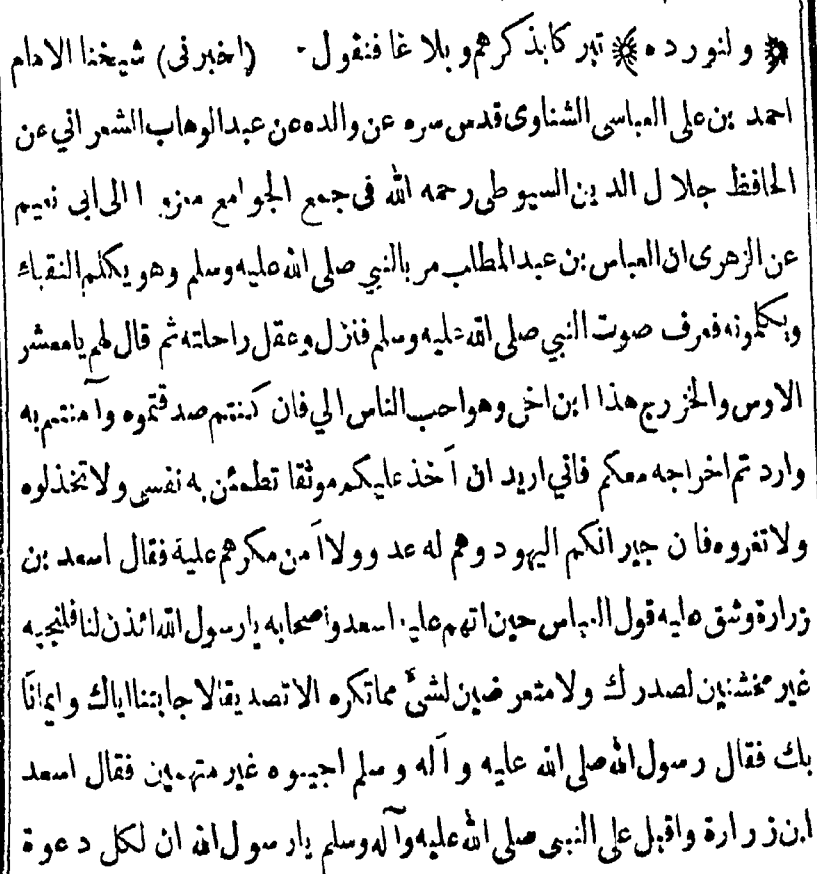 ﴿ ولنورده ﴾ تبركا بذكرهم وبلاغا فنقول - (اخبرنى) شيخنا الامام
احمد بن على العباسى الشناوى قدس سره عن والده عن عبد الوهاب الشعراني عن
الحافظ جلال الدين السيوطى رحمه الله فى جمع الجوامع معزوا الى ابى نعيم
عن الزهرى ان العباس بن عبد المطلب مر بالنبي صلى الله عليه وسلم وهو يكلم النقباء
ويكلمونه فعرف صوت النبي صلى الله عليه وسلم فنزل وعقل راحلته ثم قال لهم يا معشر
الاوس والخزرج هذا ابن اخى وهو احب الناس الي فان كنتم صدقتموه وآمنتم به
واردتم اخراجه معكم فاني اريد ان آخذ عليكم موثقا تطمئن به نفسى ولا تخذلوه
ولا تغروه فان جيرانكم اليهود وهم له عدو ولا آمن مكرهم عليه فقال اسعد بن
زرارة وشق عليه قول العباس حين اتهم عليه اسعد واصحابه يا رسول الله ائذن لنا فلنجيبه
غير مخشنين لصدرك ولا متعرضين لشئ مما تكره الا تصديقا لاجابتنا اياك وايمانا
بك فقال رسول الله صلى الله عليه وآله وسلم اجيبوه غير متهمين فقال اسعد
ابن زرارة واقبل على النبى صلى الله عليه وآله وسلم يا رسول الله ان لكل دعوة